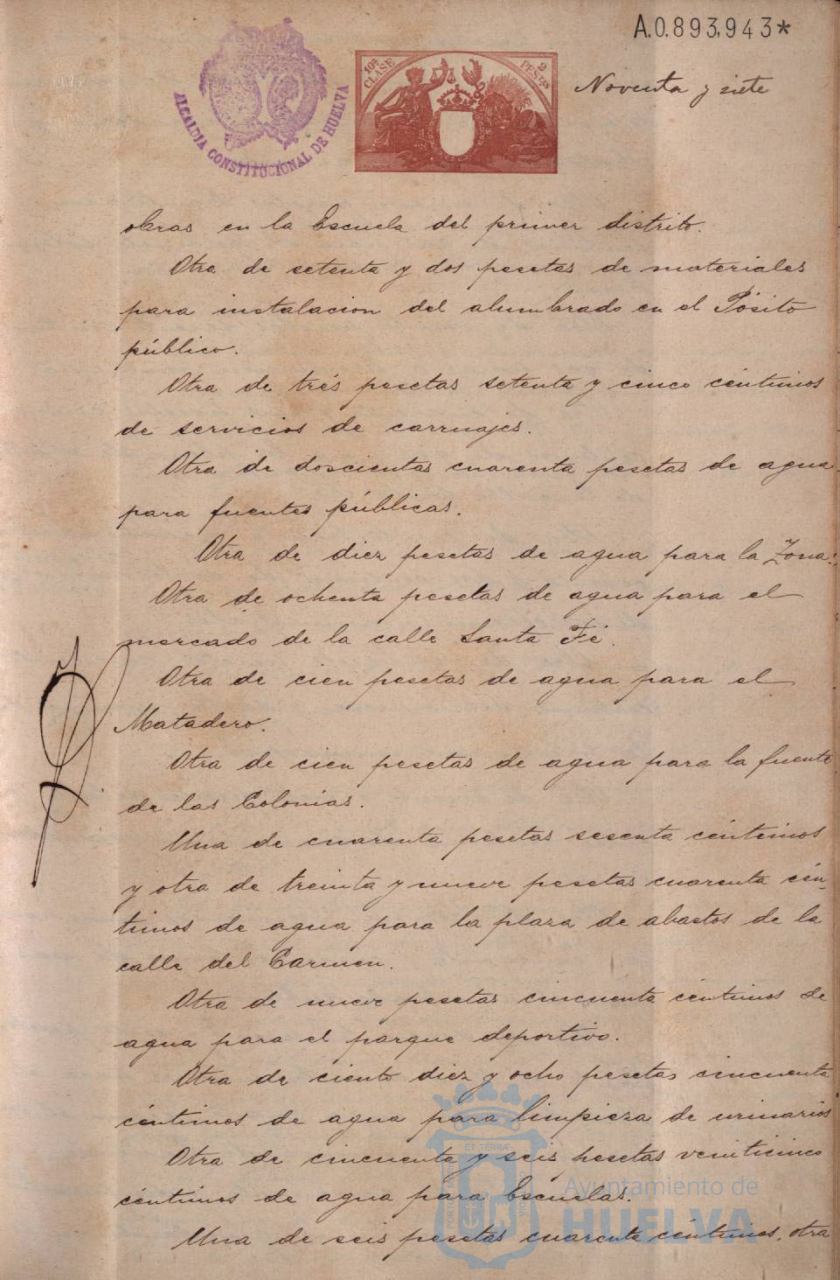 A.0.893,943*
ALCALDIA CONSTITUCIONAL DE HUELVA
10ª CLASE
2 PESETAS
Noventa y siete
obras en la Escuela del primer distrito.
Otra de setenta y dos pesetas de materiales
para instalacion del alumbrado en el Pósito
público.
Otra de trés pesetas setenta y cinco céntimos
de servicios de carruajes.
Otra de doscientas cuarenta pesetas de agua
para fuentes públicas.
Otra de diez pesetas de agua para la Zona.
Otra de ochenta pesetas de agua para el
mercado de la calle Santa Fé.
Otra de cien pesetas de agua para el
Matadero.
Otra de cien pesetas de agua para la fuente
de las Colonias.
Una de cuarenta pesetas sesenta céntimos
y otra de treinta y nueve pesetas cuarenta cén-
timos de agua para la plaza de abastos de la
calle del Carmen.
Otra de nueve pesetas cincuenta céntimos de
agua para el parque deportivo.
Otra de ciento diez y ocho pesetas cincuenta
céntimos de agua para limpieza de urinarios
Otra de cincuenta y seis pesetas veinticinco
céntimos de agua para Escuelas.
Una de seis pesetas cuarenta céntimos, otra
Ayuntamiento de
HUELVA